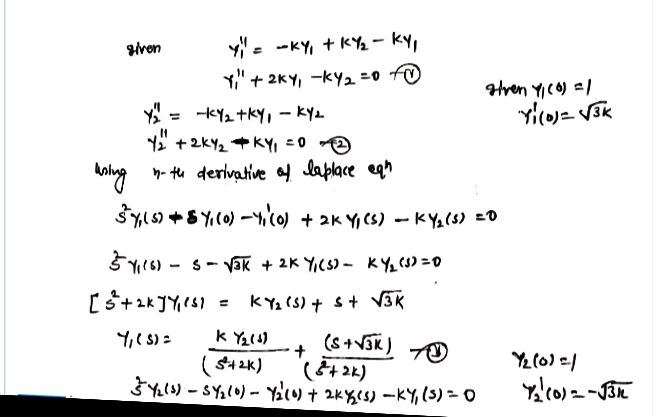 given y₁'' = -ky₁ + ky₂ - ky₁
y₁'' + 2ky₁ - ky₂ = 0 → ①
given y₁(0) = 1
y₁'(0) = √3k
y₂'' = -ky₂ + ky₁ - ky₂
y₂'' + 2ky₂ - ky₁ = 0 → ②
using n-th derivative of laplace eqn
s²y₁(s) - s y₁(0) - y₁'(0) + 2k y₁(s) - k y₂(s) = 0
s² y₁(s) - s - √3k + 2k y₁(s) - k y₂(s) = 0
[s² + 2k] y₁(s) = k y₂(s) + s + √3k
y₁(s) = k y₂(s) / (s² + 2k) + (s + √3k) / (s² + 2k) → ③
y₂(0) = 1
s² y₂(s) - s y₂(0) - y₂'(0) + 2k y₂(s) - k y₁(s) = 0
y₂'(0) = -√3k